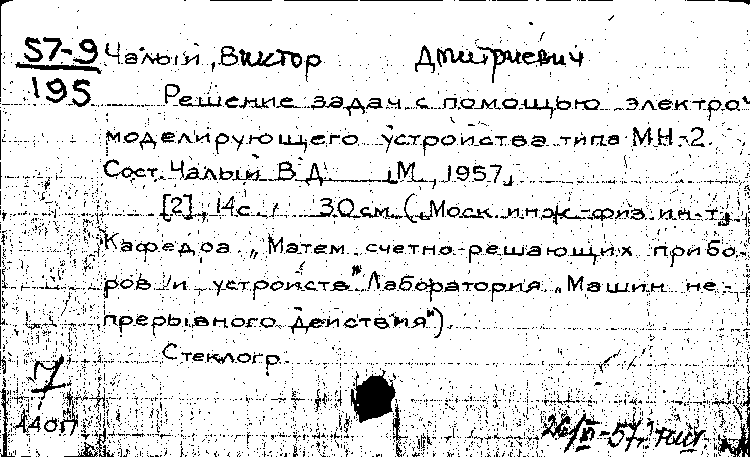 57-9 Чалый, Виктор Дмитриевич
195
Решение задач с помощью электро-
моделирующего устройства типа МН-2.
Сост. Чалый В Д [М., 1957]
[2], 14с. 30см. („Моск инж-физ ин-т„
Кафедра „Матем счетно-решающих прибо-
ров и устройств" Лаборатория „Машин не-
прерывного действия").
Стеклогр.
7